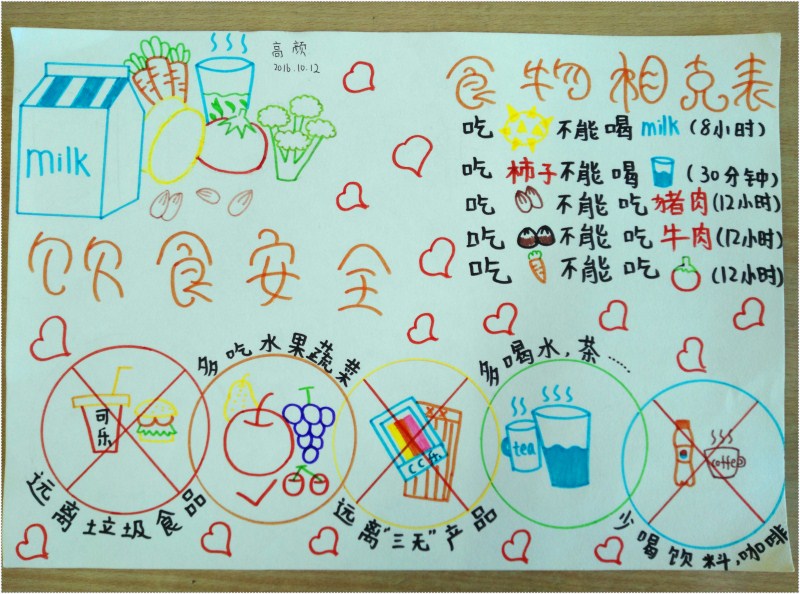 高颜
2016.10.12
milk
食物相克表
吃 不能喝 milk (8小时)
吃 柿子 不能喝 (30分钟)
吃 不能 吃 猪肉 (12小时)
吃 不能 吃 牛肉 (12小时)
吃 不能 吃 (12小时)
饮食安全
可乐
远离垃圾食品
多吃水果蔬菜
CC乐
远离"三无"产品
多喝水,茶……
tea
coffee
少喝饮料,咖啡